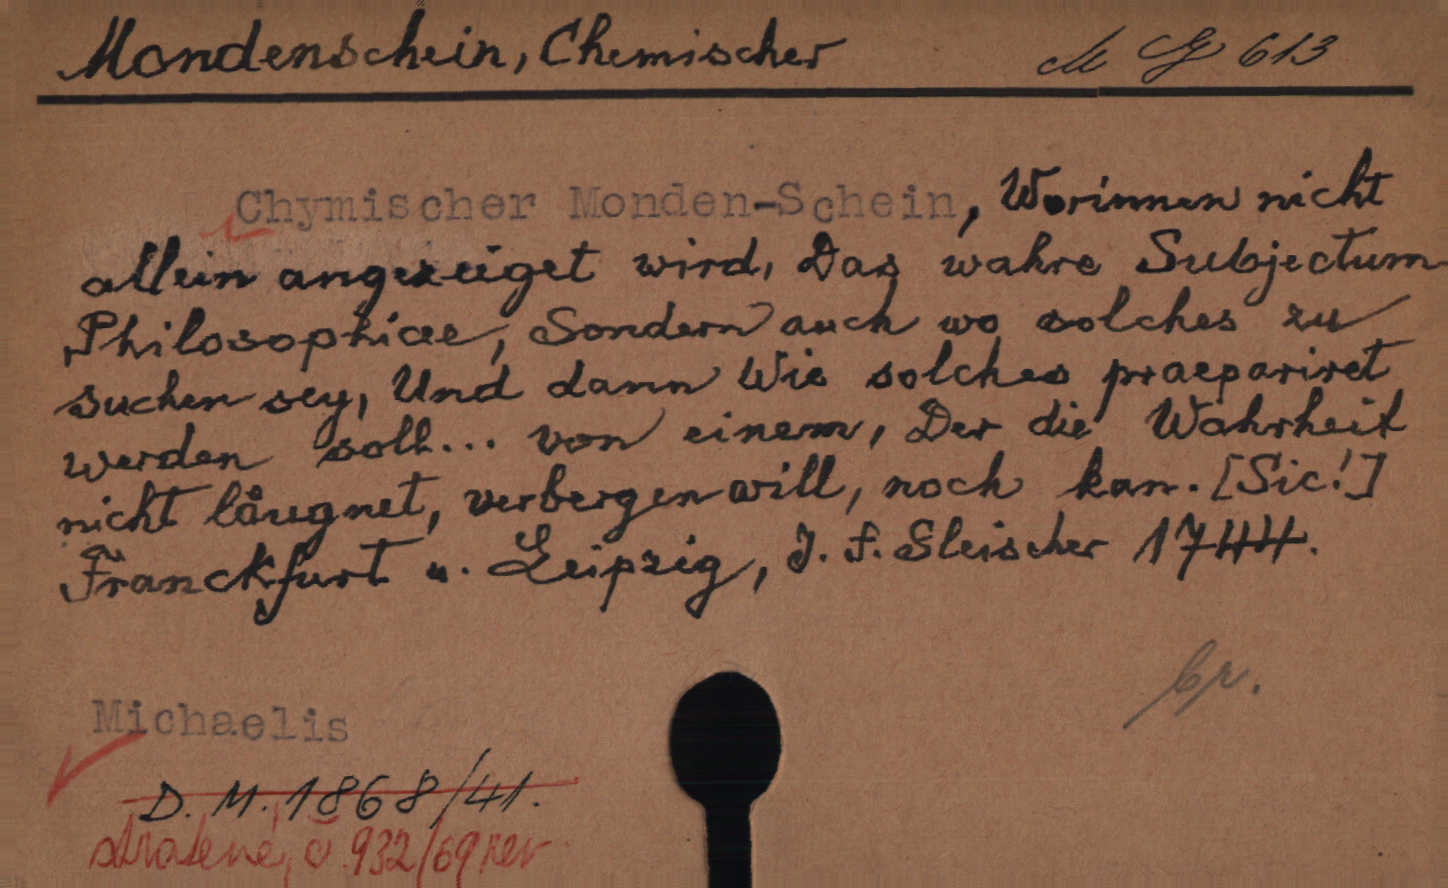 Mondenschein, Chemischer M G 613
Chymischer Monden-Schein, Worinnen nicht
allein angezeiget wird, Das wahre Subjectum
Philosophiae, Sondern auch wo solches zu
suchen sey, Und dann Wie solches praepariret
werden soll... von einem, Der die Wahrheit
nicht låugnet, verbergen will, noch kan. [Sic!]
Franckfurt u. Leipzig, J. F. Fleischer 1744.
Michaelis
D. M. 1868/41.
ztratené, č. 932/69 rev